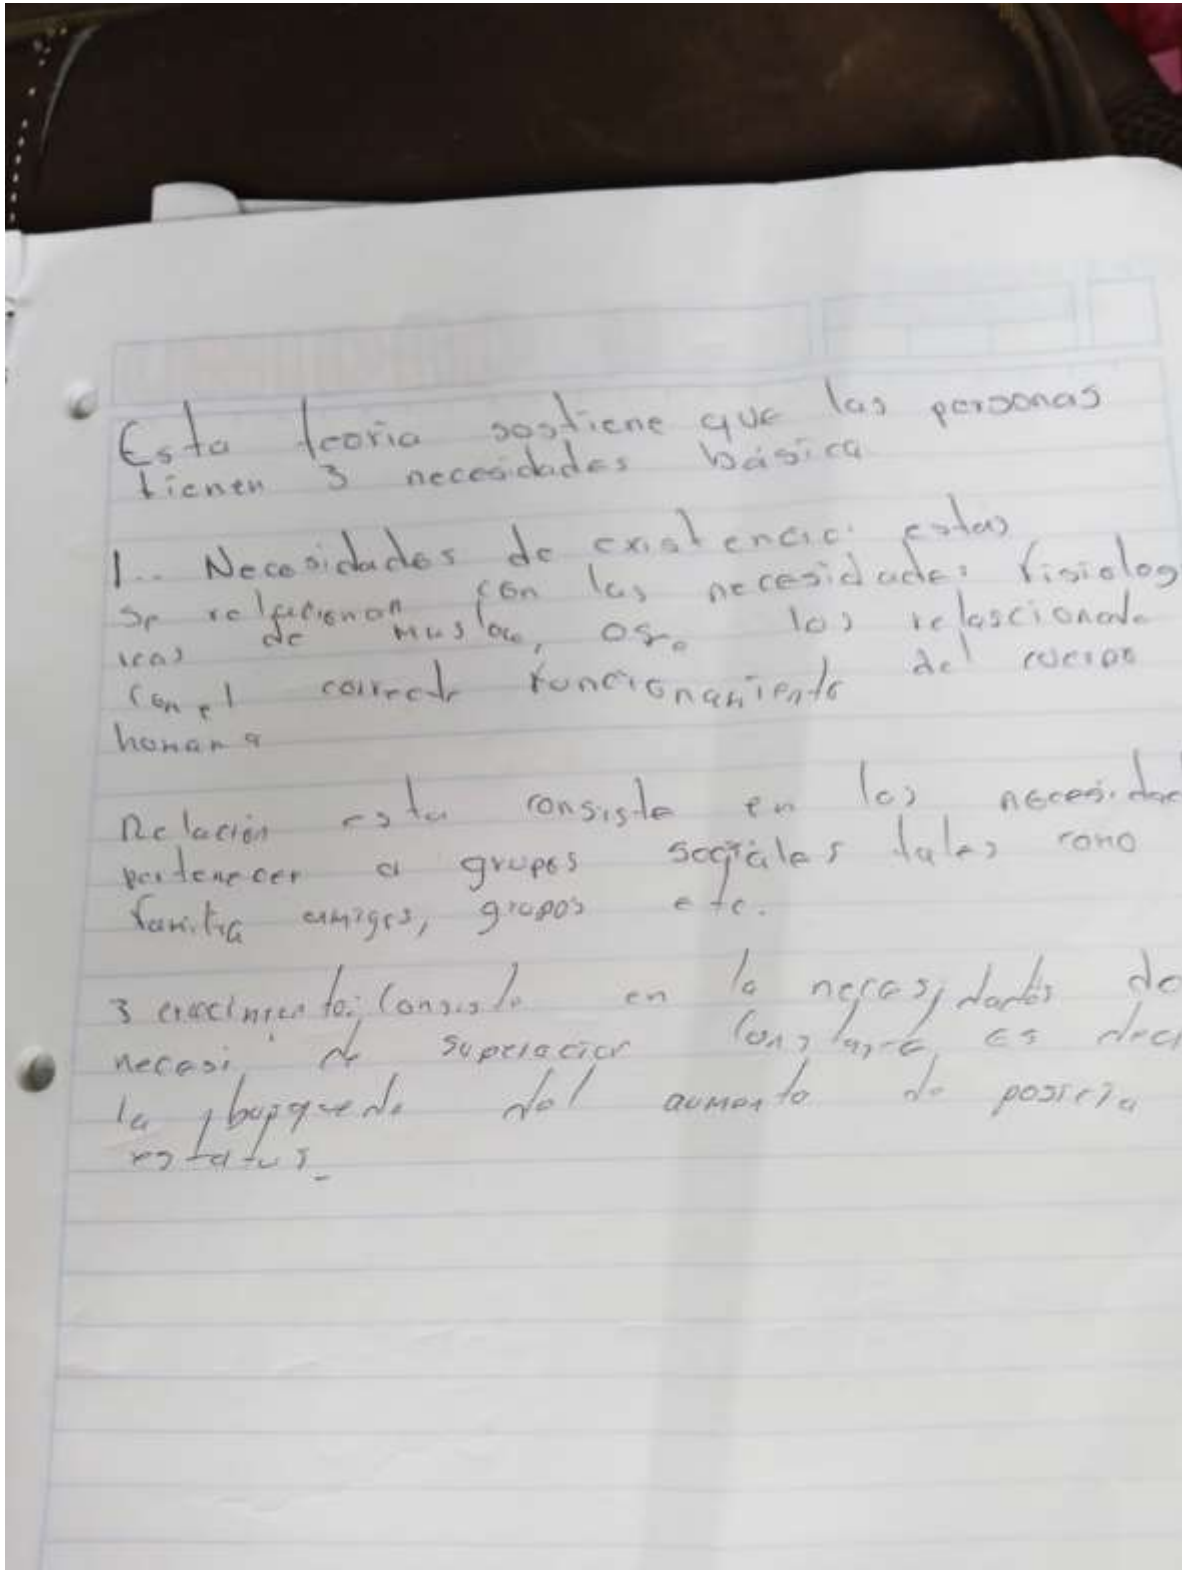 Esta teoria sostiene que las personas
tienen 3 necesidades básica
1.. Necesidades de existencia: estas
se relacionan con las necesidades fisiolog
icas de Muslow, osea los relascionado
con el correcto funcionamiento del cuerpo
homano
Relación esta consiste en las necesidad
pertenecer a grupos sociales tales como
familia amigos, grupos etc.
3 crecimiento: Consiste en la necesidades de
necesi de superacion constante, es deci
la busqueda del aumento de posicio
estatus